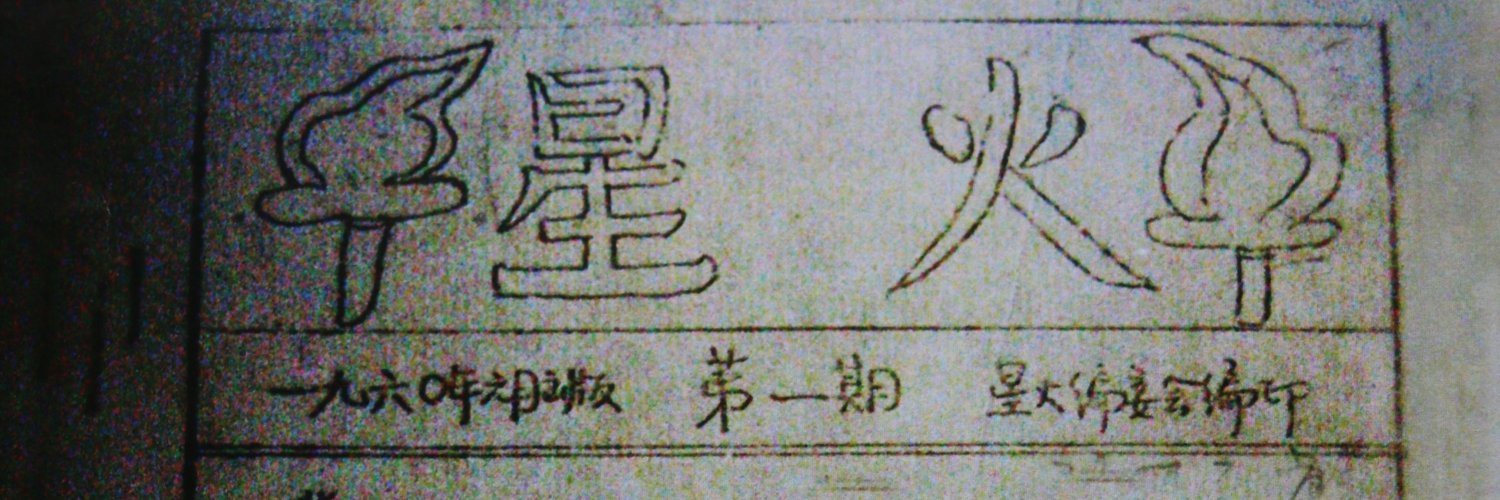 星火
一九六〇年元月出版 第一期 星火编委会编印